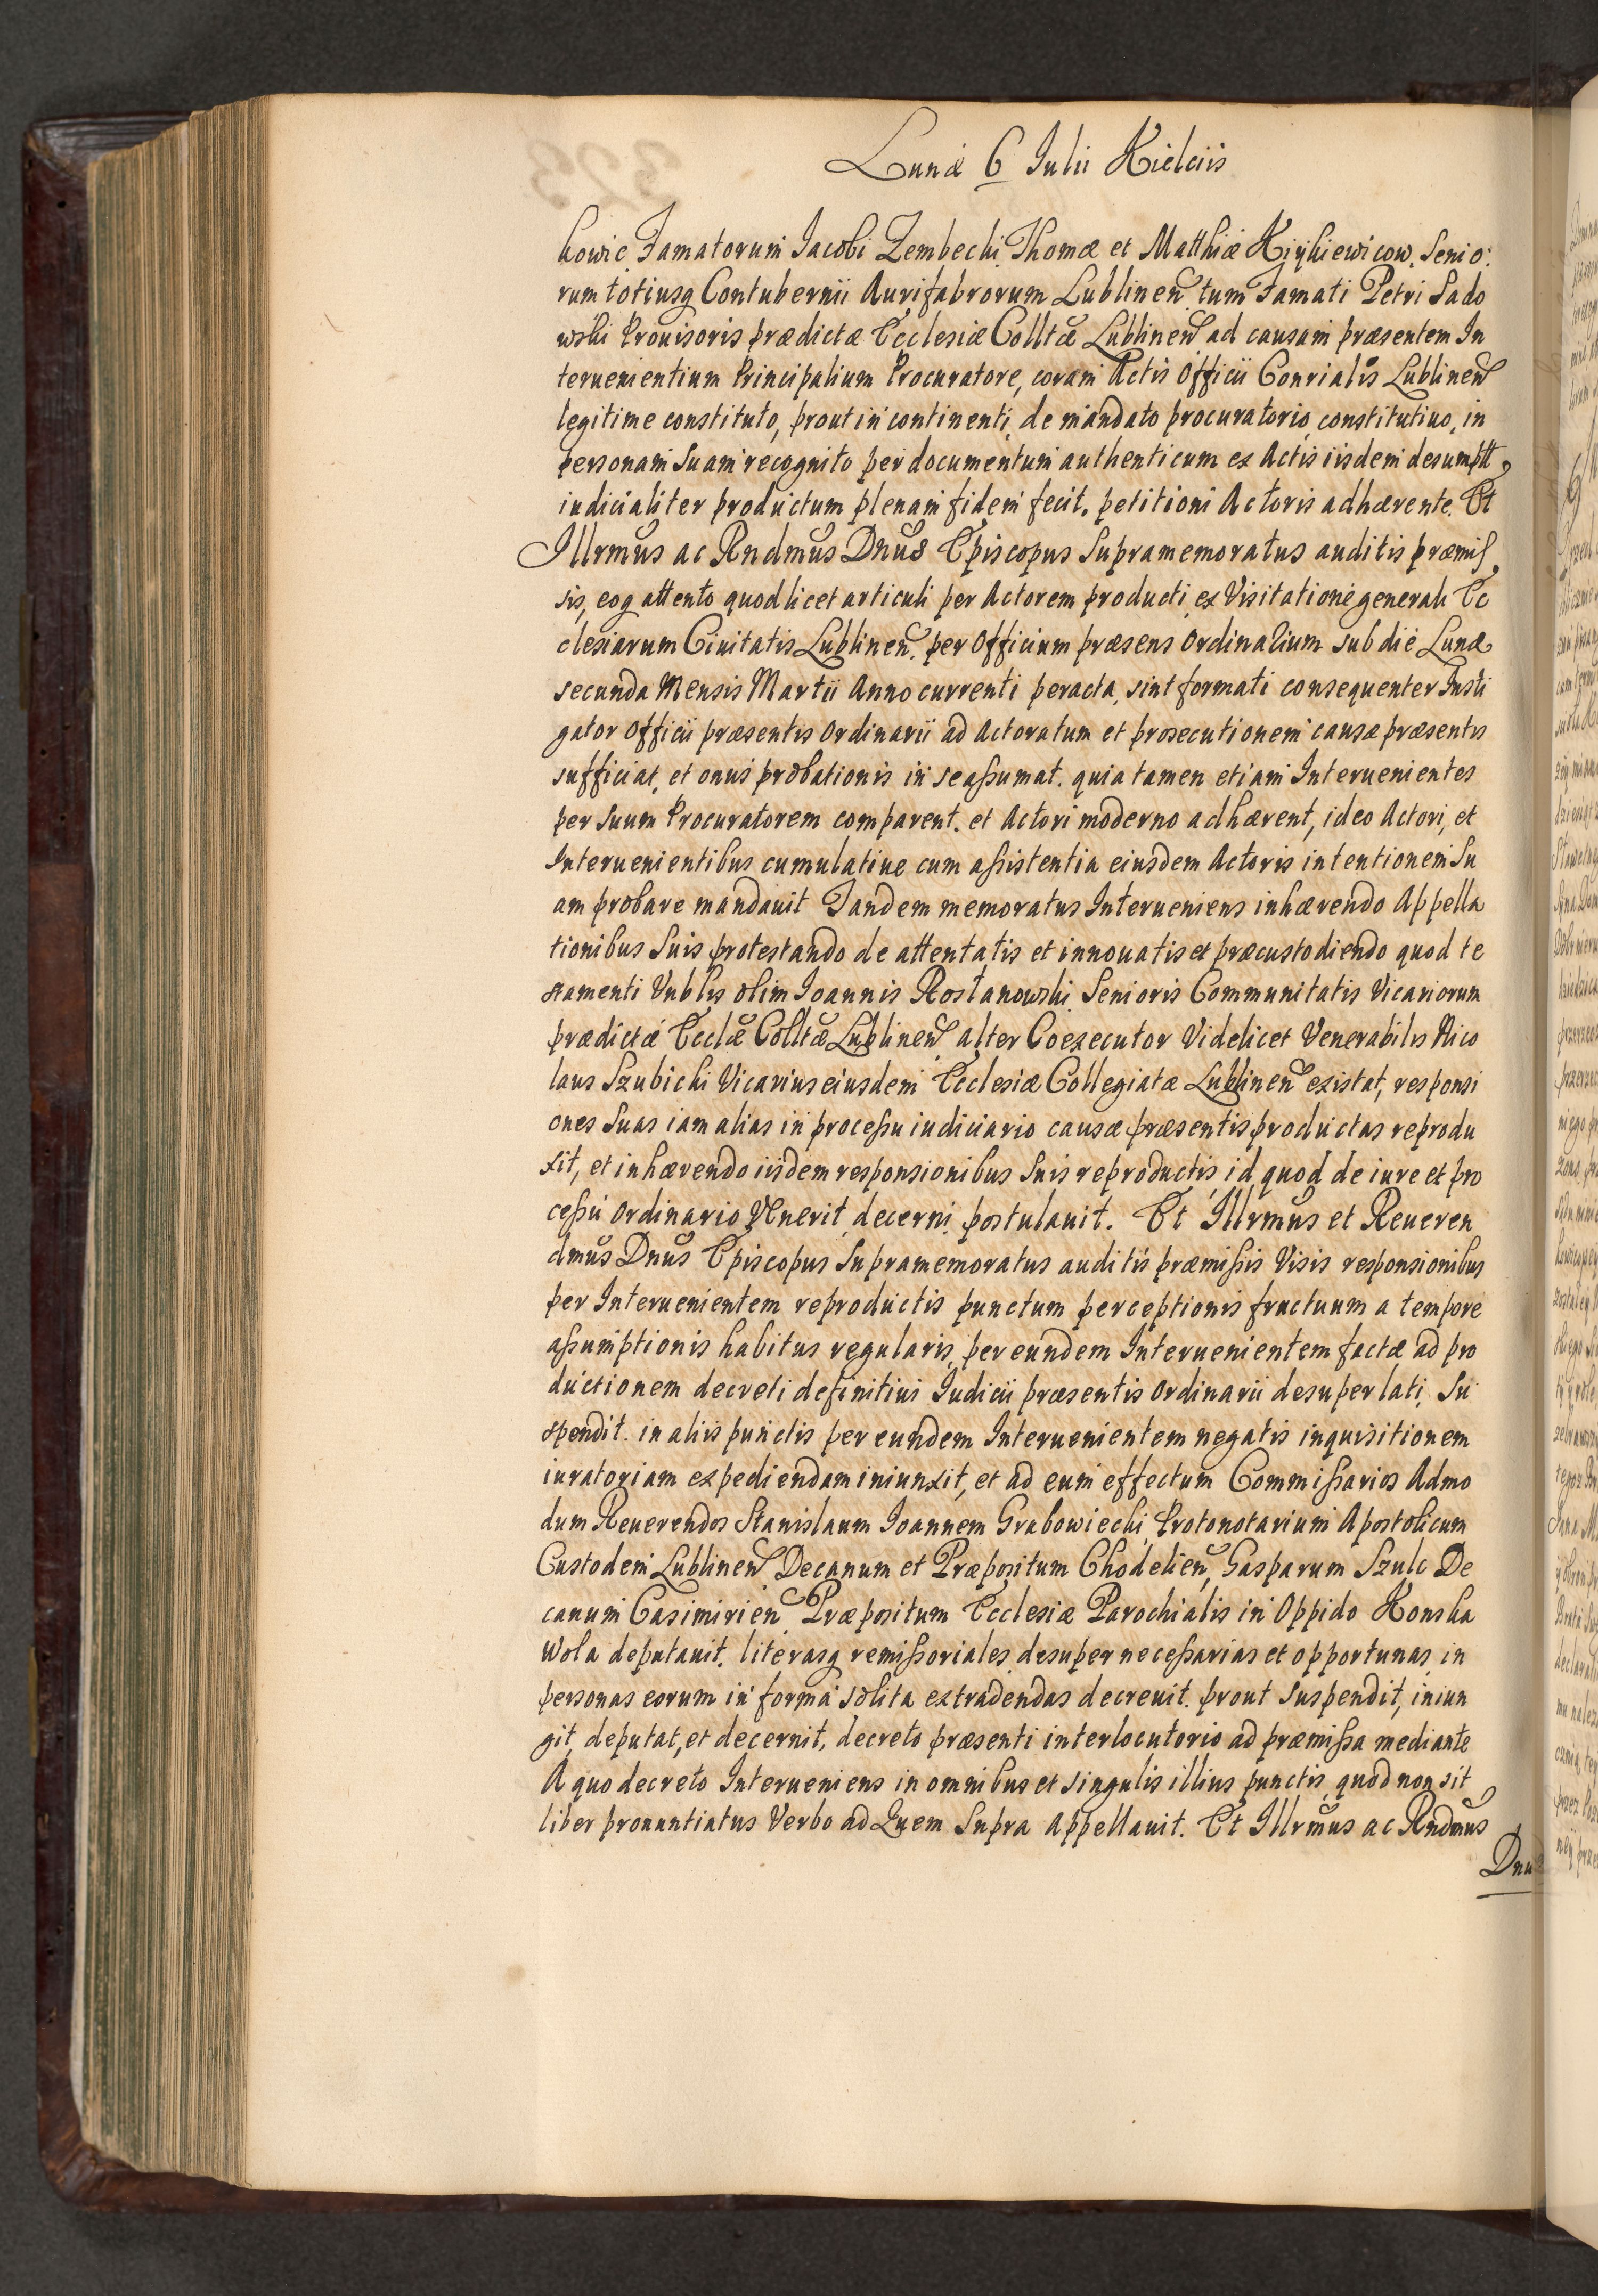 Lunæ 6 Iulii Kielciis
kowic Famatorum Iacobi Zembecki Thomæ et Matthiæ Kiiykiewicow, Senio:
rum totiusq Contubernii Aurifabrorum Lublinen tum Famati Petri Sado
wski Prouisoris prædictæ Ecclesiæ Colltæ Lublinen ad causam præsentem In
teruenientium Principalium Procuratore, coram Actis Officii Conrialis Lublinen
legitime constituto, prout in continenti de mandato procuratorio constitutiuo, in
personam Suam recognito per documentum authenticum ex Actis iisdem desumptt
iudicialiter productum plenam fidem fecit, petitioni Actoris adhærente. Et
Illrmus ac Rndmus Dnus Episcopus Supramemoratus auditis præmis
sis, eoq attento quod licet articuli per Actorem producti ex Visitatione generali Ec
clesiarum Ciuitatis Lublinen. per Officium præsens Ordinalium sub die Lunæ
secunda Mensis Martii Anno currenti peracta, sint formati consequenter Insti
gator Officii præsentis Ordinarii ad Actoratum et prosecutionem causæ præsentis
sufficiat, et onus probationis in se assumat. quia tamen etiam Interuenientes
per Suum Procuratorem comparent. et Actori moderno adhærent, ideo Actori, et
Interuenientibus cumulatiue cum assistentia eiusdem Actoris intentionem Su
am probare mandauit Tandem memoratus Interueniens inhærendo Appella
tionibus Suis protestando de attentatis et innouatis et præcustodiendo quod te
stamenti Vnblis olim Ioannis Rostanowski Senioris Communitatis Vicariorum
prædictæ Ecclæ Colltæ Lublinen alter Coexecutor Videlicet Venerabilis Nico
laus Szubicki Vicarius eiusdem Ecclesiæ Collegiatæ Lublinen existat, responsi
ones Suas iam alias in processu iudiciario causæ præsentis productas reprodu
xit, et inhærendo iisdem responsionibus Suis reproductis id quod de iure et pro
cessu Ordinario Venerit decerni postulauit. Et Illrmus et Reueren
dmus Dnus Episcopus Supramemoratus auditis præmissis Visis responsionibus
per Interuenientem reproductis punctum perceptionis fructuum a tempore
assumptionis habitus regularis per eundem Interuenientem factæ ad pro
ductionem decreti definitiui Iudicii præsentis Ordinarii desuper lati, Su
spendit. in aliis punctis per eundem Interuenientem negatis inquisitionem
iuratoriam expediendam iniunxit, et ad eum effectum Commissarios Admo
dum Reuerendos Stanislaum Ioannem Grabowiecki Protonotarium Apostolicum
Custodem Lublinen Decanum et Præpositum Chodelien, Gasparum Szulc De
canum Casimirien Præpositum Ecclesiæ Parochialis in Oppido Konska
Wola deputauit. literasq remissoriales desuper necessarias et opportunas in
personas eorum in forma solita extradendas decreuit. prout suspendit, iniun
git deputat, et decernit, decreto præsenti interlocutorio ad præmissa mediante
A quo decreto Interueniens in omnibus et singulis illius punctis quod non sit
liber pronuntiatus Verbo ad Quem Supra Appellauit. Et Illrmus ac Rndmus
Dnu